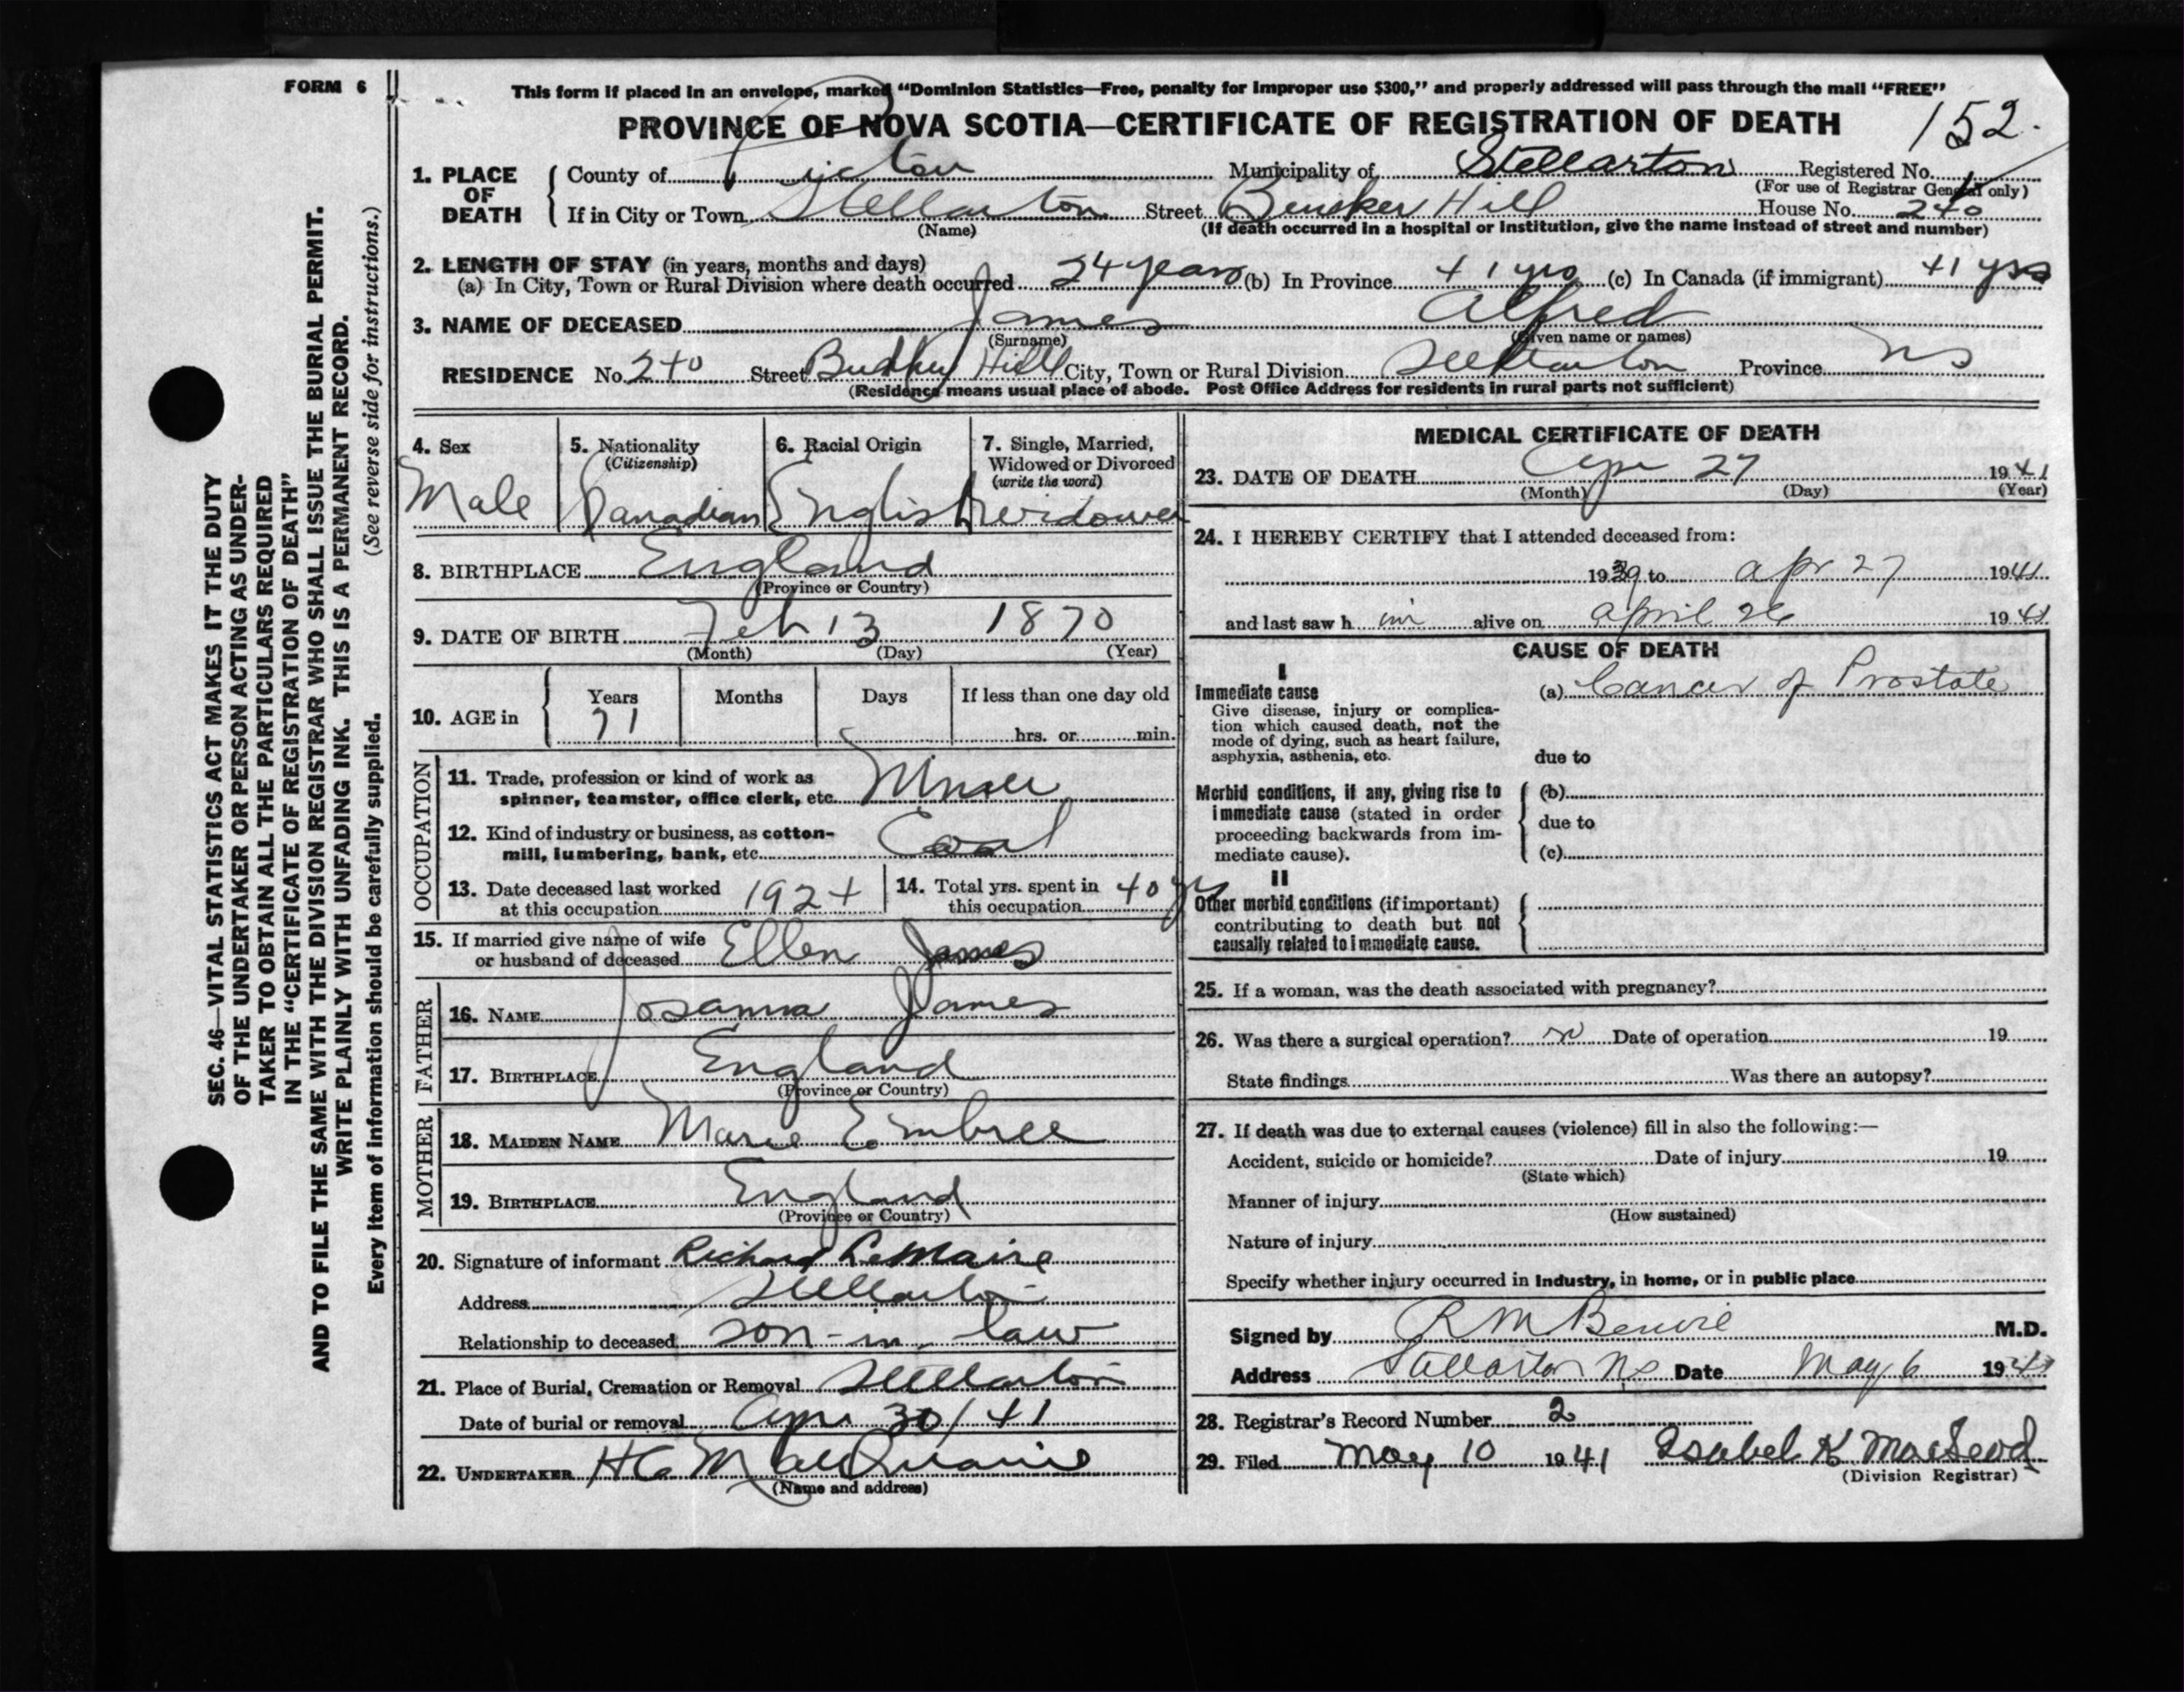 FORM 6
This form if placed in an envelope, marked “Dominion Statistics—Free, penalty for improper use $300,” and properly addressed will pass through the mail “FREE”
PROVINCE OF NOVA SCOTIA—CERTIFICATE OF REGISTRATION OF DEATH
152.
1. PLACE OF DEATH
County of Pictou Municipality of Stellarton Registered No.
(For use of Registrar General only)
If in City or Town Stellarton Street Hill House No. 240
(Name) (If death occurred in a hospital or institution, give the name instead of street and number)
2. LENGTH OF STAY (in years, months and days)
(a) In City, Town or Rural Division where death occurred 24 years (b) In Province 41 yrs (c) In Canada (if immigrant) 41 yrs
3. NAME OF DECEASED James Alfred
(Surname) (Given name or names)
RESIDENCE No. 240 Street Hill City, Town or Rural Division Stellarton Province NS
(Residence means usual place of abode. Post Office Address for residents in rural parts not sufficient)
4. Sex
Male
5. Nationality
(Citizenship)
Canadian
6. Racial Origin
English
7. Single, Married,
Widowed or Divorced
(write the word)
Widower
8. BIRTHPLACE England
(Province or Country)
9. DATE OF BIRTH Feb 13 1870
(Month) (Day) (Year)
10. AGE in
Years Months Days If less than one day old
71
hrs. or min.
OCCUPATION
11. Trade, profession or kind of work as
spinner, teamster, office clerk, etc.
12. Kind of industry or business, as cotton-
mill, lumbering, bank, etc. Coal
13. Date deceased last worked
at this occupation 1924
14. Total yrs. spent in
this occupation 40 yrs
15. If married give name of wife
or husband of deceased Ellen James
FATHER
16. NAME James
17. BIRTHPLACE England
(Province or Country)
MOTHER
18. MAIDEN NAME Marie Embree
19. BIRTHPLACE England
(Province or Country)
20. Signature of informant Richard LeMaire
Address Stellarton
Relationship to deceased son-in-law
21. Place of Burial, Cremation or Removal Stellarton
Date of burial or removal Apr 30/41
22. UNDERTAKER
(Name and address)
MEDICAL CERTIFICATE OF DEATH
23. DATE OF DEATH Apr 27 1941
(Month) (Day) (Year)
24. I HEREBY CERTIFY that I attended deceased from:
1939 to Apr 27 1941
and last saw h im alive on April 26 1941
CAUSE OF DEATH
I
Immediate cause
Give disease, injury or complica-
tion which caused death, not the
mode of dying, such as heart failure,
asphyxia, asthenia, etc.
(a) Cancer of Prostate
due to
Morbid conditions, if any, giving rise to
immediate cause (stated in order
proceeding backwards from im-
mediate cause).
(b)
due to
(c)
II
Other morbid conditions (if important)
contributing to death but not
causally related to immediate cause.
25. If a woman, was the death associated with pregnancy?
26. Was there a surgical operation? no Date of operation 19
State findings Was there an autopsy?
27. If death was due to external causes (violence) fill in also the following:—
Accident, suicide or homicide? Date of injury 19
(State which)
Manner of injury
(How sustained)
Nature of injury
Specify whether injury occurred in industry, in home, or in public place
Signed by R M Benvie M.D.
Address Stellarton NS Date May 6 1941
28. Registrar's Record Number 2
29. Filed May 10 1941 Isabel K MacLeod
(Division Registrar)
SEC. 46—VITAL STATISTICS ACT MAKES IT THE DUTY
OF THE UNDERTAKER OR PERSON ACTING AS UNDER-
TAKER TO OBTAIN ALL THE PARTICULARS REQUIRED
IN THE “CERTIFICATE OF REGISTRATION OF DEATH”
AND TO FILE THE SAME WITH THE DIVISION REGISTRAR WHO SHALL ISSUE THE BURIAL PERMIT.
WRITE PLAINLY WITH UNFADING INK. THIS IS A PERMANENT RECORD.
Every item of information should be carefully supplied. (See reverse side for instructions.)